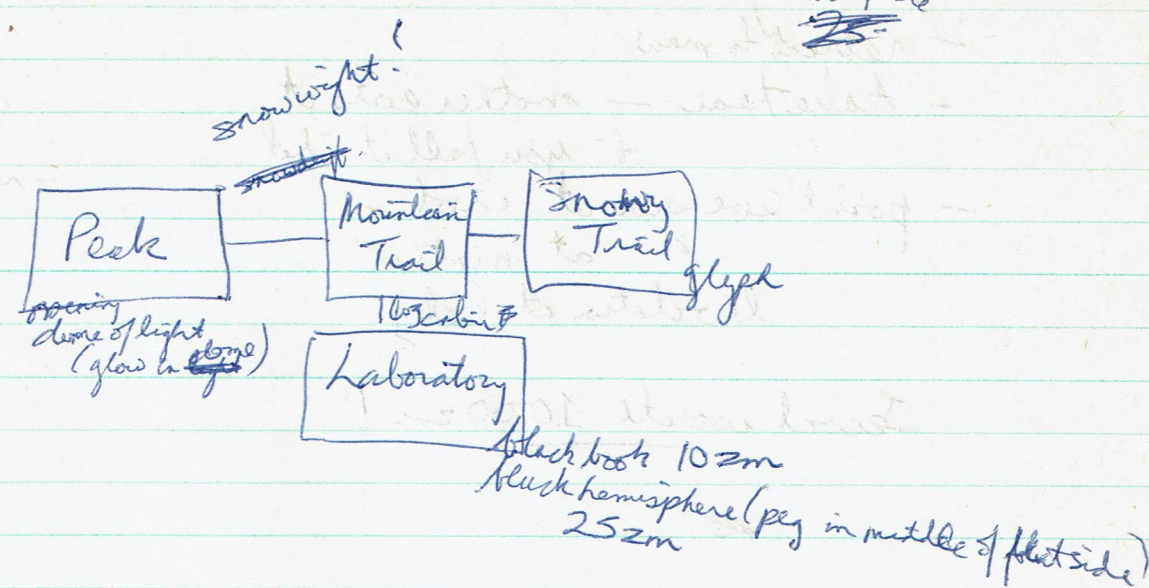 25
snow wight!
Peak
Mountain
Trail
Snowy
Trail
glyph
opening
dome of light
(glow in dome)
log cabin
Laboratory
black book 10zm
black hemisphere (peg in middle of flat side)
25zm